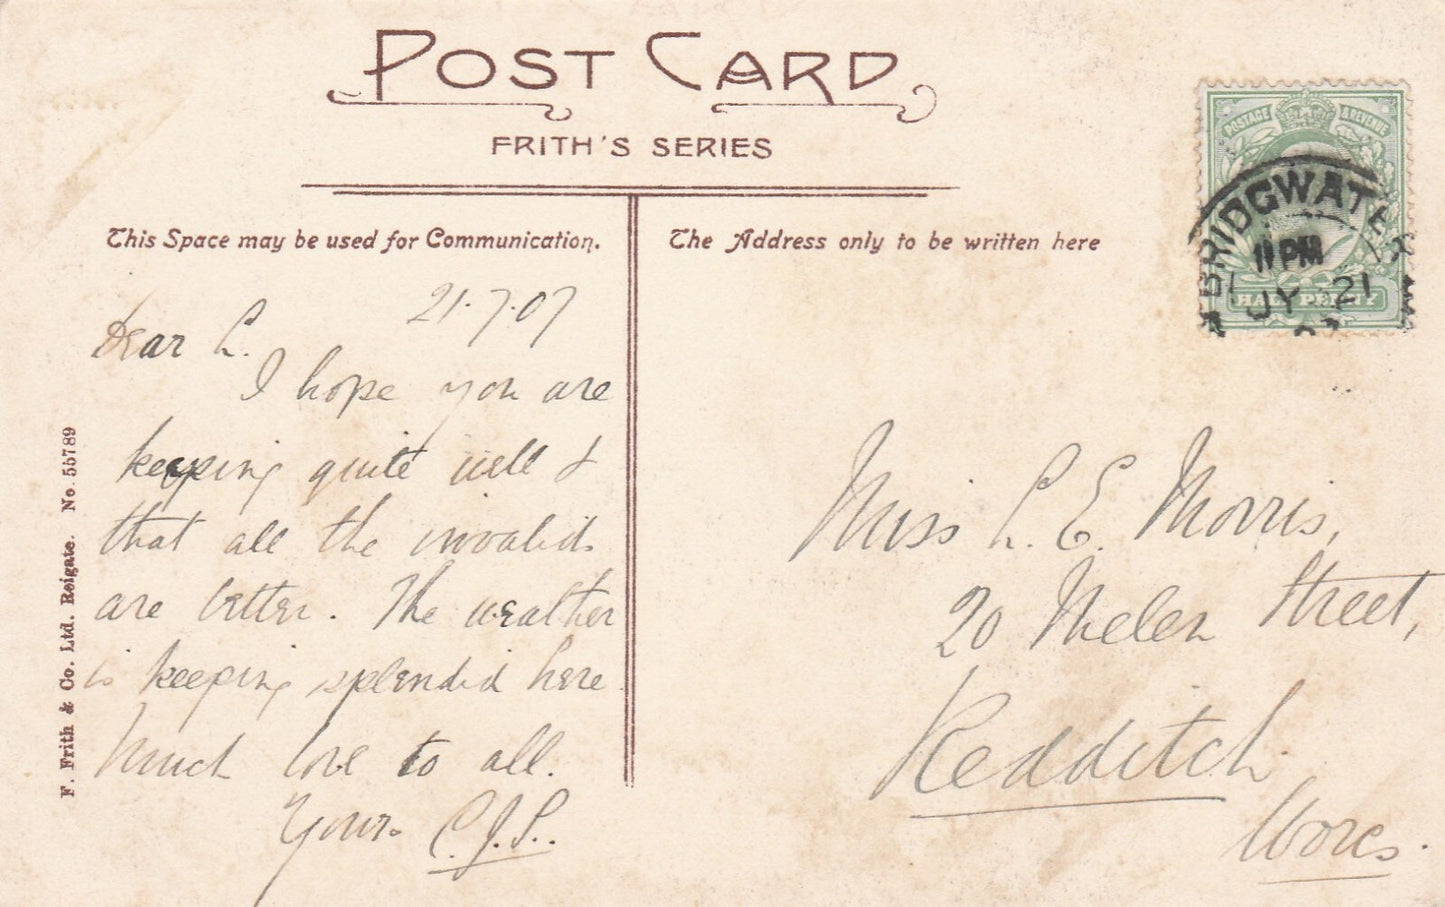 POST CARD
FRITH'S SERIES
This Space may be used for Communication.
The Address only to be written here
POSTAGE & REVENUE
HALF PENNY
BRIDGWATER
11 PM
JY 21
07
21.7.07
Dear L.
I hope you are
keeping quite well &
that all the invalids
are better. The weather
is keeping splendid here.
Much love to all.
Yours C.J.S..
Miss L. E. Morris,
20 Melen Street,
Redditch
Worcs.
F. Frith & Co. Ltd. Reigate. No. 55789